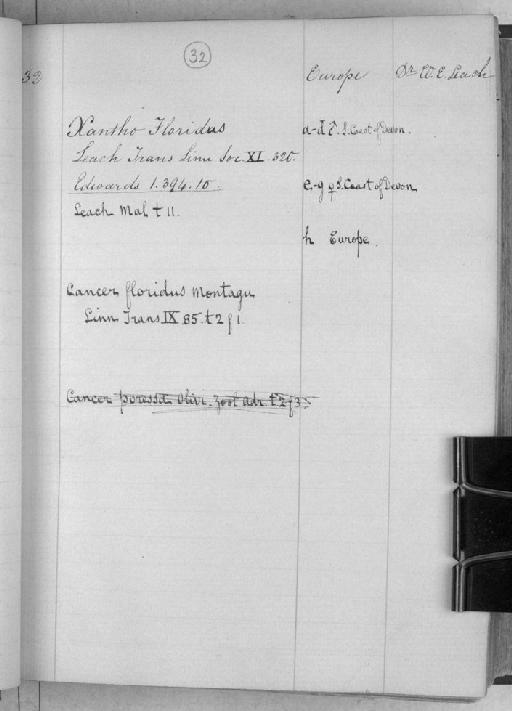 32
33
Europe Dr W. E. Leach
Xantho Floridus a-d ♂. S. Coast of Devon.
Leach Trans Linn Soc. XI. 320.
Edwards 1. 394. 15. e.-g ♀ S. Coast of Devon
Leach Mal t 11.
h Europe.
Cancer floridus Montagu
Linn Trans IX 85. t 2 f 1.
Cancer poressa Olivi. Zool adr. t 2 f 3